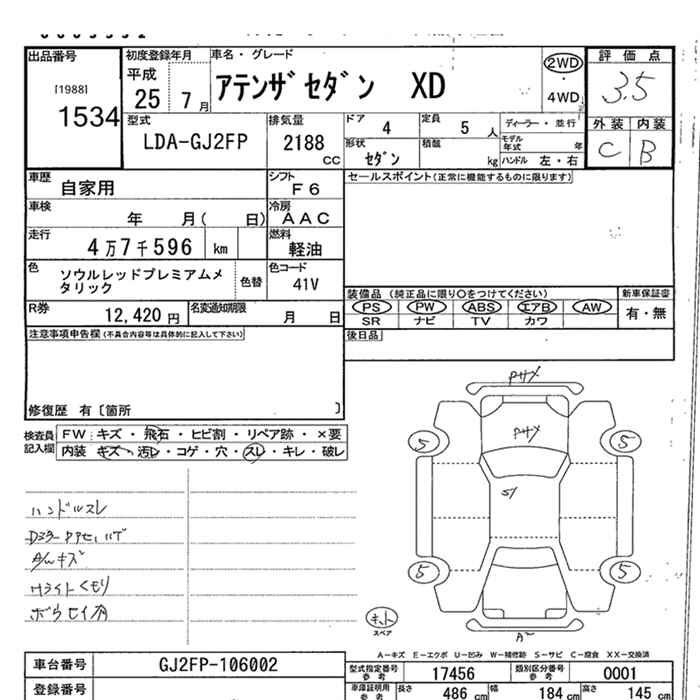 出品番号 初度登録年月 車名・グレード 評価点
[1988] 平成 アテンザセダン XD 2WD 3.5
1534 25 7月 4WD
型式 排気量 ドア 定員 ディーラー・並行 外装 内装
LDA-GJ2FP 2188 CC 4 5人 モデル年式 年 C B
形状 積載 kg ハンドル 左・右
セダン
車歴 自家用 シフト F6 セールスポイント(正常に機能するものに限ります)
車検 年 月( 日) 冷房 AAC
走行 4万7千596 km 燃料 軽油
色 ソウルレッドプレミアムメタリック 色替 色コード 41V
装備品 (純正品に限り○をつけてください) 新車保証書
R券 12,420円 名変通知期限 月 日 PS PW ABS エアB AW 有・無
SR ナビ TV カワ
注意事項申告欄(不具合内容等は具体的に記入して下さい) 後日品
修復歴 有〔箇所 〕
検査員記入欄 FW:キズ・飛石・ヒビ割・リペア跡・×要
内装 キズ・汚レ・コゲ・穴・スレ・キレ・破レ
ハンドルスレ
A/Wキズ
Hライトくもり
5 5
5 5
キット
スペア
A-キズ E-エクボ U-凹み W-補修跡 S-サビ C-腐食 XX-交換済
車台番号 GJ2FP-106002 型式指定番号 参考 17456 類別区分番号 参考 0001
登録番号 車庫証明用 参考 長さ 486 cm 幅 184 cm 高さ 145 cm